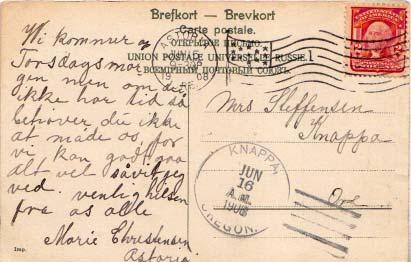 Brefkort – Brevkort
Carte postale.
ОТКРЫТОЕ ПИСЬМО.
UNION POSTALE UNIVERSELLE. RUSSIE.
ВСЕМІРНЫЙ ПОЧТОВЫЙ СОЮЗЪ.
Vi kommer og
Torsdagsmor
gen men om du
ikke har tid så
behøver du ikke
at møde os for
vi kan godt gaa
alt vel såvit jeg
ved. venlig hilsen
fra os alle
Marie Christensen
Astoria
Imp.
ASTORIA
JUN 15
1908
Mrs Steffensen
Knappa
Ore
KNAPPA,
JUN
16
A.M.
1908
OREGON.